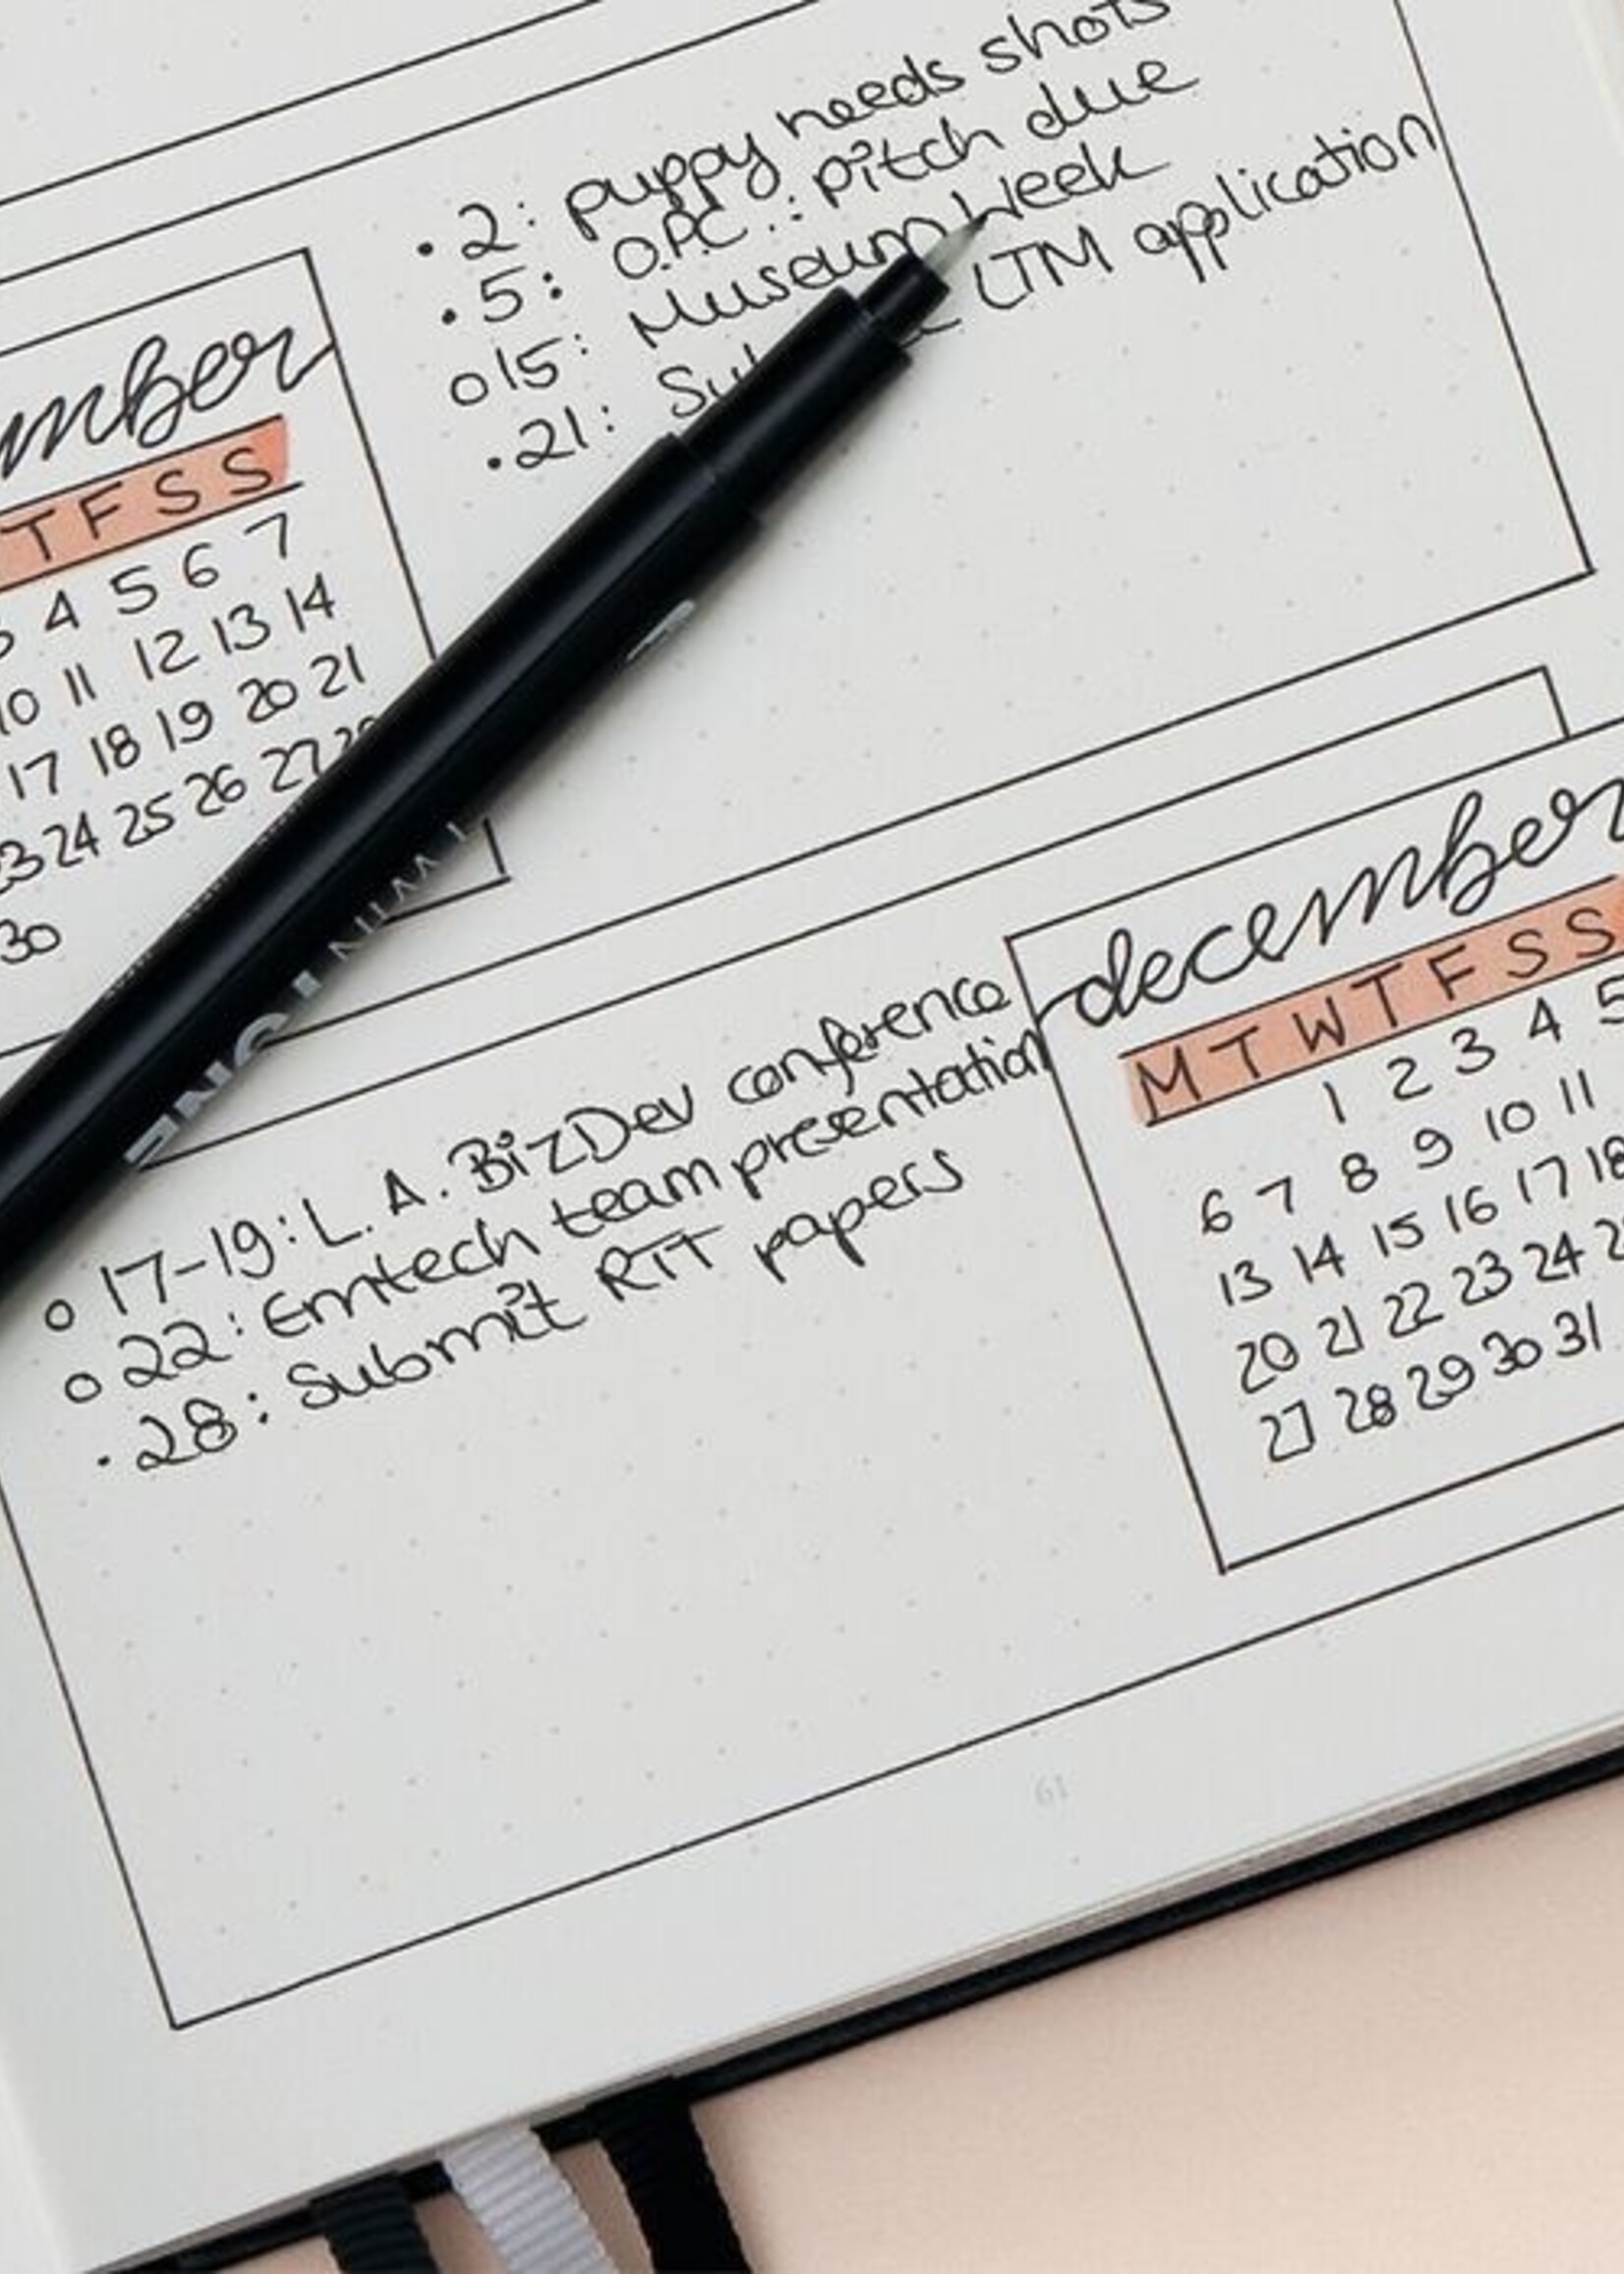 • 2: puppy needs shots
• 5: O.P.C.: pitch due
o 15: Museum Week
• 21: LTM application
mber
T F S S
4 5 6 7
10 11 12 13 14
17 18 19 20 21
23 24 25 26 27
30
o 17-19: L.A. BizDev conference
o 22: Emtech team presentation
• 28: Submit RTT papers
december
M T W T F S S
1 2 3 4 5
6 7 8 9 10 11
13 14 15 16 17 18
20 21 22 23 24
27 28 29 30 31
61